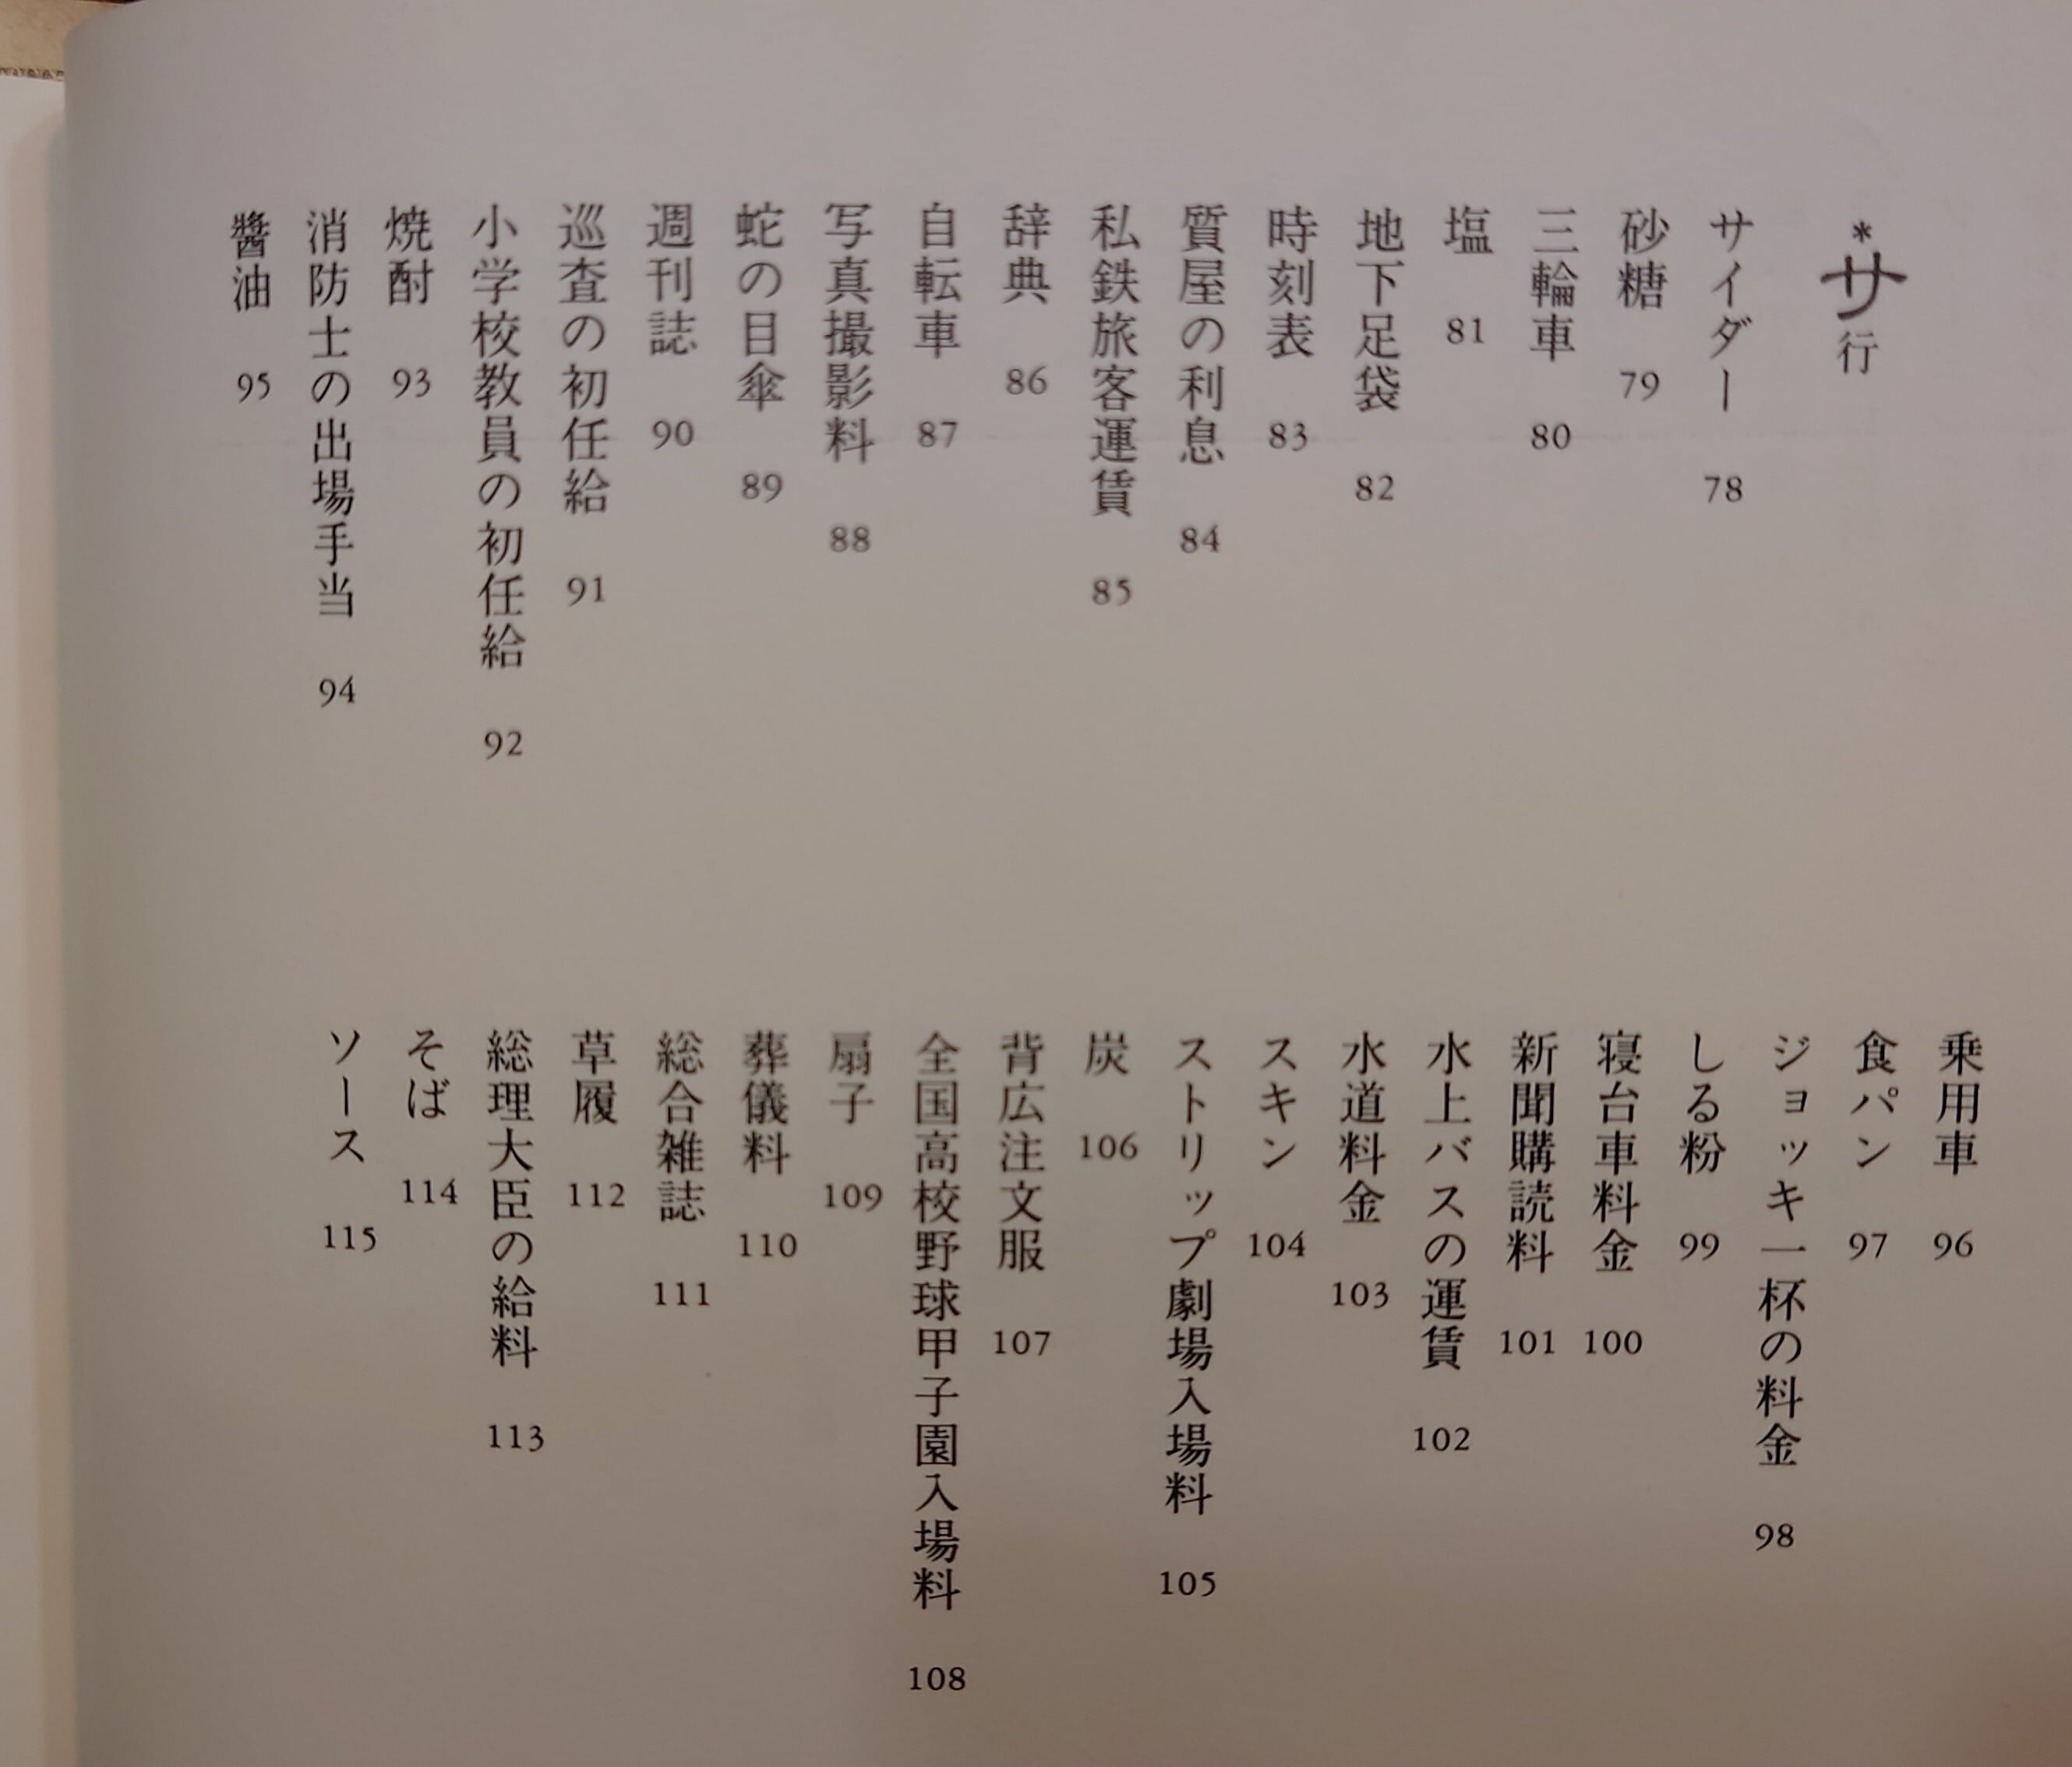 *サ行
サイダー 78
砂糖 79
三輪車 80
塩 81
地下足袋 82
時刻表 83
質屋の利息 84
私鉄旅客運賃 85
辞典 86
自転車 87
写真撮影料 88
蛇の目傘 89
週刊誌 90
巡査の初任給 91
小学校教員の初任給 92
焼酎 93
消防士の出場手当 94
醬油 95
乗用車 96
食パン 97
ジョッキ一杯の料金 98
しる粉 99
寝台車料金 100
新聞購読料 101
水上バスの運賃 102
水道料金 103
スキン 104
ストリップ劇場入場料 105
炭 106
背広注文服 107
全国高校野球甲子園入場料 108
扇子 109
葬儀料 110
総合雑誌 111
草履 112
総理大臣の給料 113
そば 114
ソース 115